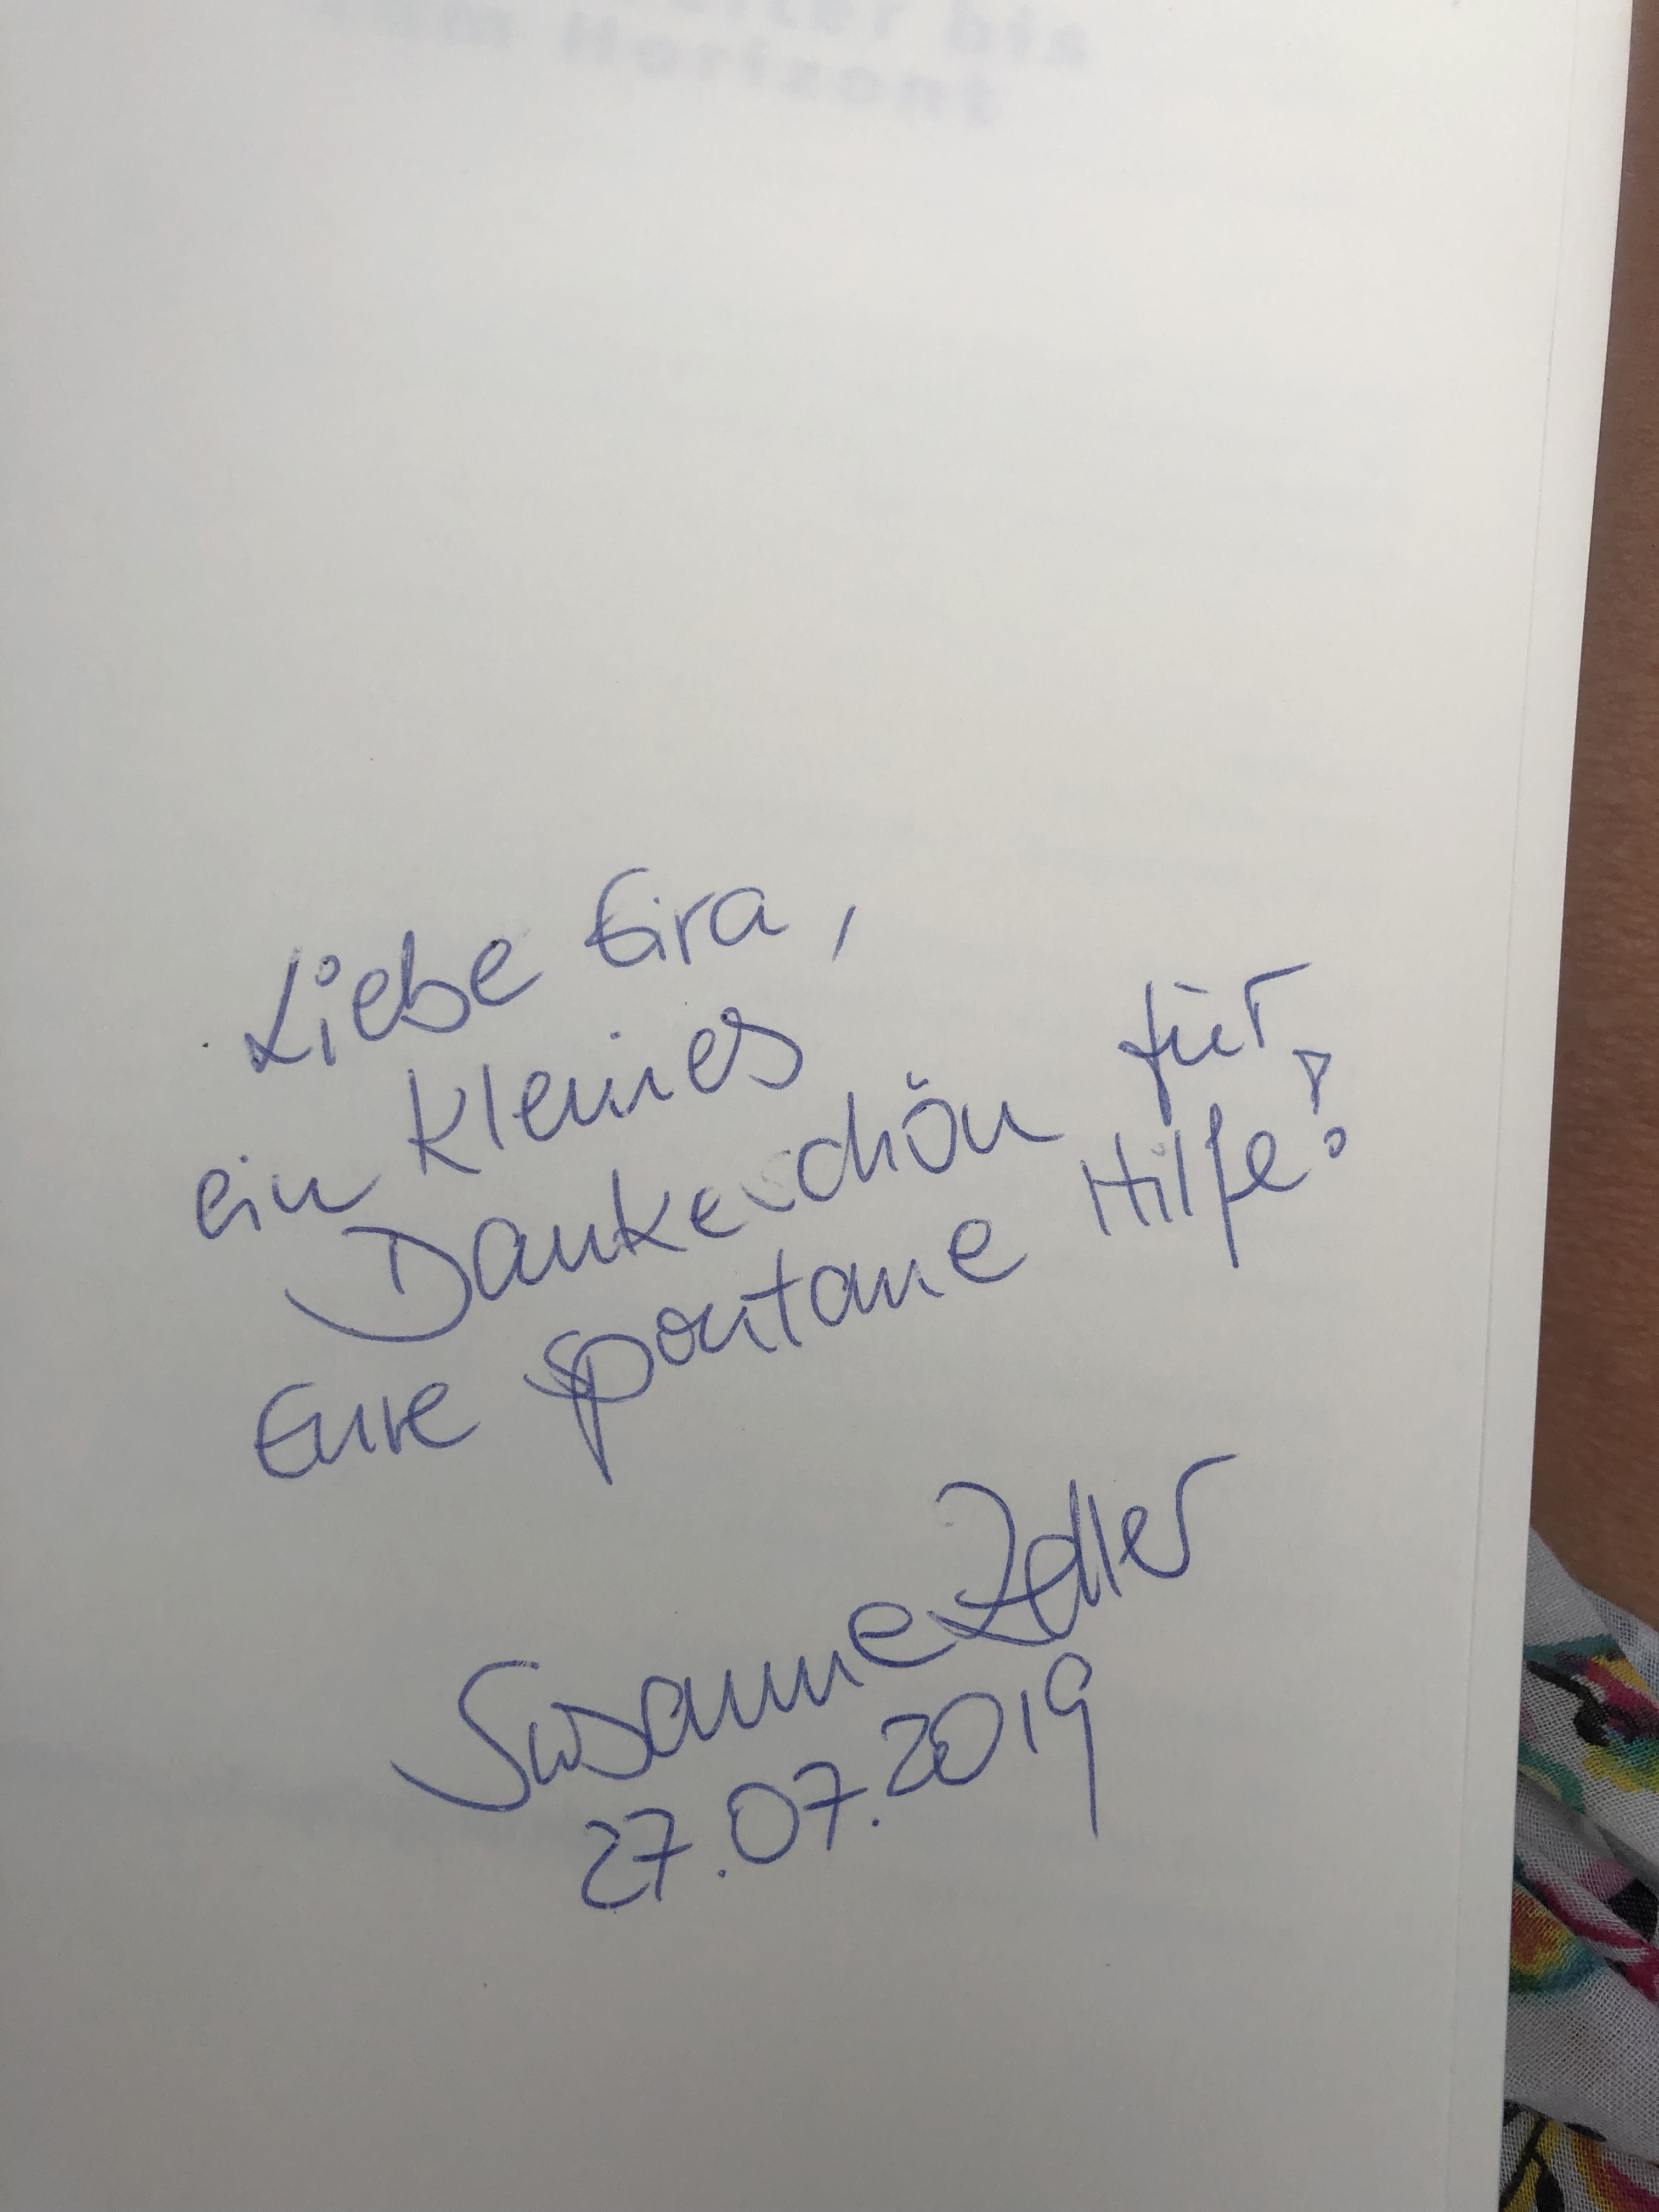 bis
Horizont
Liebe Eira,
ein kleines
Dankeschön für
Eure spontane Hilfe!
Susanne Zeller
27.07.2019